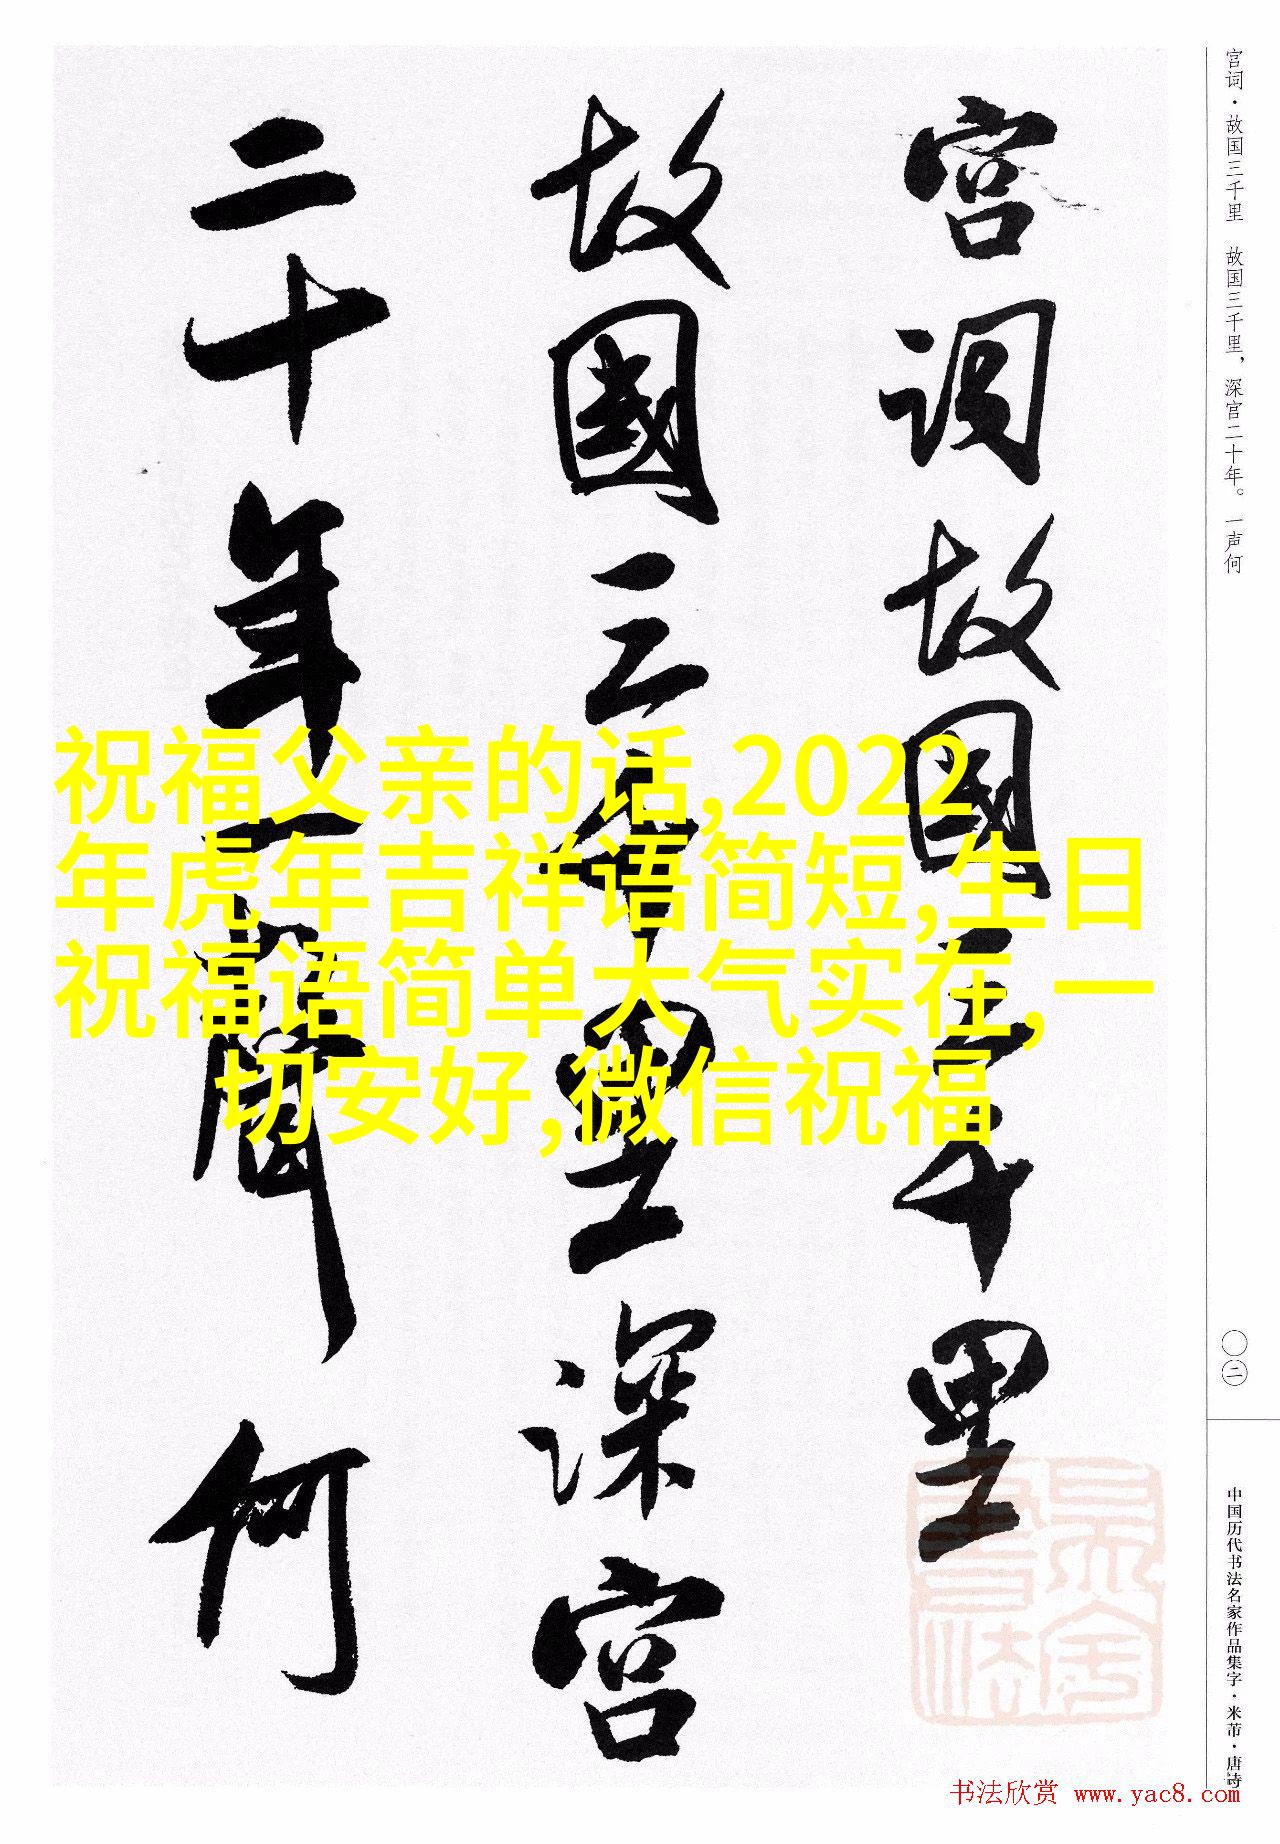 宫词·故国三千里　故国三千里，深宫二十年。一声何
宫词故國三千里
故國三千里深宫
二十年一聲何
祝福父亲的话,2022
年虎年吉祥语简短,生日
祝福语简单大气实在,一
切安好,微信祝福
〇二
中国历代书法名家作品集字·米芾·唐诗
书法欣赏 www.yac8.com